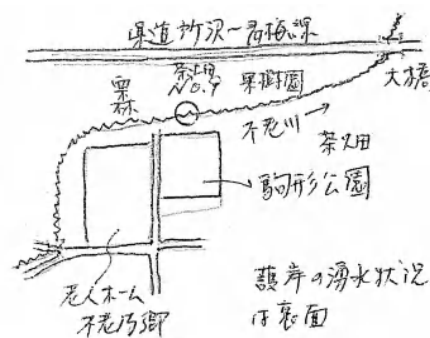 県道所沢〜青梅線
茶畑
No.9
栗林
果樹園
大橋
不老川
茶畑
駒形公園
老人ホーム
不老乃郷
護岸の湧水状況
は裏面